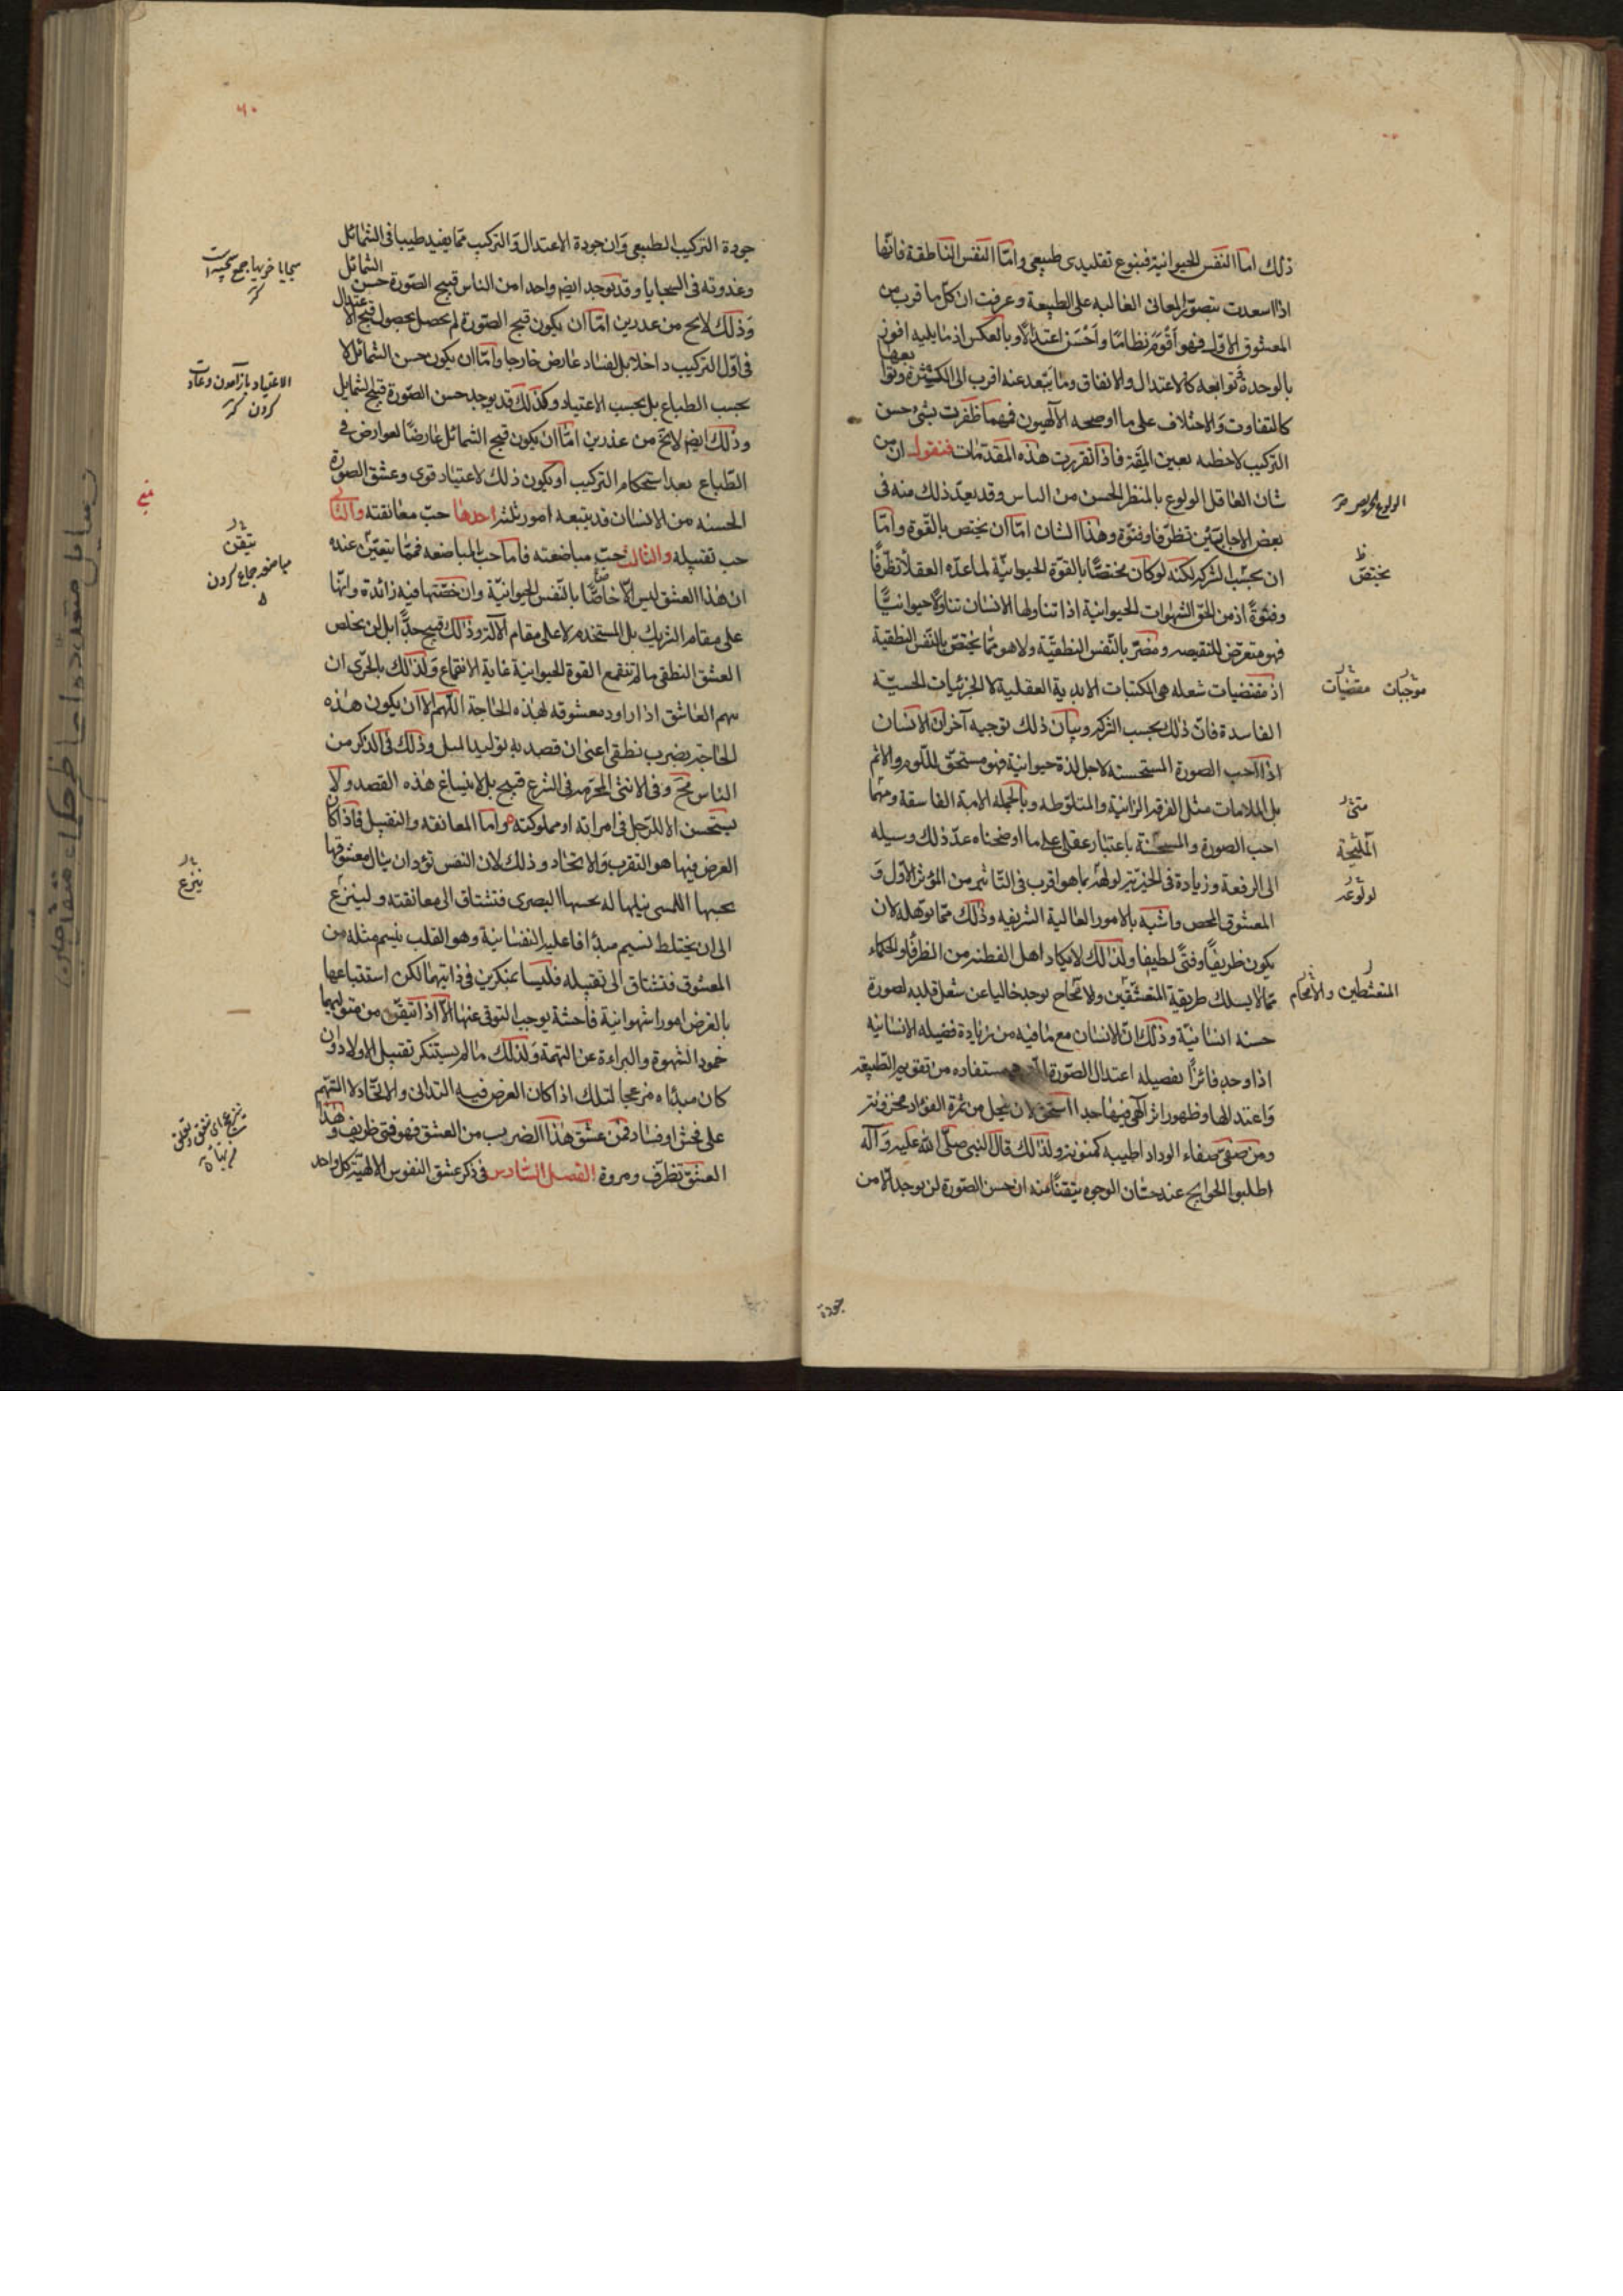 ذلك اما النفس الحيوانية فبنوع تقليدى طبيعى واما النفس الناطقة فانها
اذا اسعدت بتصور المعانى الغالبه على الطبيعة وعرفت ان كل ما قرب من
المعشوق الاول فهو اقوم نظاما واحسن اعتدالا وبالعكس اذ ما يليه افوز
بالوحدة ثم توابعه كالاعتدال والاتفاق وما يتبعد عنه اقرب الى الكثرة وتوابعها
كالتفاوت والاختلاف على ما اوضحه الالهيون فهما ظفرت بشئ حسن
التركيب لاحظته بعين المقة فاذا تقررت هذه المقدمات فنقول ان من
شان العاقل الولوع بالمنظر الحسن من الناس وقد يعد ذلك منه فى
بعض الاحايين تظرفا وفتوة وهذا الشان اما ان يختص بالقوة واما
ان بحسب الشركه لكنه لو كان مختصا بالقوة الحيوانية لما عده العقلا تظرفا
وفتوة اذ من الحق الشهوات الحيوانية اذا تناولها الانسان تناولا حيوانيا
فهو متعرض للنقيصه ومضر بالنفس النطقية ولا هو مما يختص بالنفس النطقية
اذ مقتضيات شغله هى الكليات الابدية العقلية لا الجزئيات الحسية
الفاسدة فان ذلك بحسب الشركه وبيان ذلك بوجه آخر ان الانسان
اذا احب الصورة المستحسنه لاجل لذة حيوانية فهو مستحق للوم والاثم
بل الملامات مثل الفرقه الزانية والمتلوطه وبالجمله الامة الفاسقة ومهما
احب الصورة والمستحسنة باعتبار عقلى على ما اوضحناه عد ذلك وسيله
الى الرفعة وزيادة فى الخيرية لولهه بما هو اقرب فى التاثير من المؤثر الاول و
المعشوق المحض واشبه بالامور العالية الشريفه وذلك مما يؤهله لان
يكون ظريفا وفتى لطيفا ولذلك لا يكاد اهل الفطنه من الظرفا والحكماء
مما لا يسلك طريقة المتعشقين ولا يوجد خاليا عن شغل قلبه لصورة
حسنه انسانية وذلك ان الانسان مع ما فيه من زيادة فضيله الانسانيه
اذا وجد فائزا بفضيله اعتدال الصورة التى هى مستفاده من تقويم الطبيعه
واعتدالها وظهور اثر الهى فيها جدا استحق لان ينحل من ثمرة الفؤاد مخزونه
ومن صفى صفاء الوداد اطيبه كمنونه ولذلك قال النبى صلى الله عليه وآله
اطلبوا الحوايج عند حسان الوجوه يتقنا منه ان حسن الصورة لن يوجد الا من
الولوع
يختص ظ
موجبات مقتضيات
متى
المليحة
لولوعه
المتفطنين
جودة
٦٠
جودة التركيب الطبيعى وان جودة الاعتدال والتركيب مما يفيد طيبا فى الشمائل
وعذوبة فى السجايا وقد يوجد ايضا واحد من الناس قبيح الصورة حسن الشمائل
وذلك لا يخ من عذرين اما ان يكون قبح الصورة لم يحصل بحصول قبح الاعتدال
فى اول التركيب داخلا بل لفساد عارض خارجا واما ان يكون حسن الشمائل لا
بحسب الطباع بل بحسب الاعتياد وكذلك قد يوجد حسن الصورة قبيح الشمايل
وذلك ايضا لا يخ من عذرين اما ان يكون قبح الشمائل عارضا لعوارض فى
الطباع بعد استحكام التركيب او يكون ذلك لاعتياد قوى وعشق الصورة
الحسنه من الانسان قد يتبعه امور ثلثه احدها حب معانقته والثانى
حب تقبيله والثالث حب مباضعته فاما حب المباضعه فمما يتعين عنده
ان هذا العشق ليس الا خاصا بالنفس الحيوانية وان حصتها فيه زائدة وانها
على مقام الشريك بل المستخدم لا على مقام الاله وذلك قبيح جدا بل لن يخلص
العشق النطقى ما لم تنقمع القوة الحيوانية غاية الانقماع ولذلك بالحرى ان
يتهم العاشق اذا راود معشوقه لهذه الحاجة اللهم الا ان يكون هذه
الحاجه بضرب نطقى اعنى ان قصد به توليد المثل وذلك فى الذكر من
الناس مح وفى الانثى المحرمه فى الشرع قبيح بل لا ينساغ هذه القصد ولا
يستحسن الا للرجل فى امراته او مملوكته واما المعانقه والتقبيل فاذا كان
الغرض فيها هو التقرب والاتحاد وذلك لان النفس تؤد ان ينال معشوقها
بحسها اللمسى نيلها له بحسها البصرى فتشتاق الى معانقته ولينزع
الى ان يختلط نسيم مبدأ افاعليه النفسانية وهو القلب بنسيم مثله من
المعشوق فتشتاق الى تقبيله فليسا بمنكرين فى ذاتيهما لكن استتباعها
بالعرض امورا شهوانية فاحشة يوجب التوقى عنها الا اذا تيقن من متوليهما
خمود الشهوة والبراءة عن التهمة ولذلك ما لم يستنكر تقبيل الاولاد وان
كان مبدأه مزعجا لتلك اذا كان الغرض فيه التدانى والاتحاد لا التهم
على فحش او فساد فمن عشق هذا الضرب من العشق فهو فتى ظريف وهذا
العشق تظرف ومروة الفصل السادس فى ذكر عشق النفوس الالهية كل واحد
سجايا خويها جمع سجيه است كز
الاعتياد باز آمدن وعادت كردن كز
تيقن
مباضعه جماع كردن
ينزع